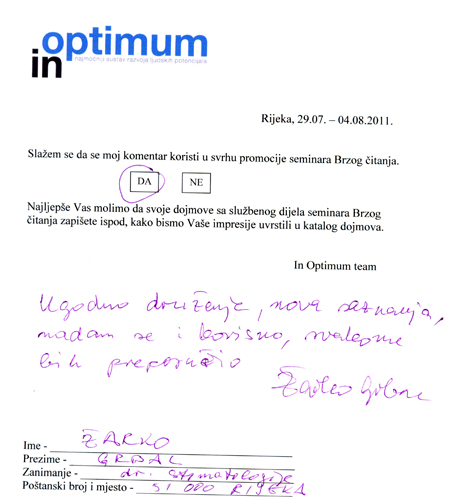 in optimum
najmoćniji sustav razvoja ljudskih potencijala
Rijeka, 29.07. – 04.08.2011.
Slažem se da se moj komentar koristi u svrhu promocije seminara Brzog čitanja.
DA NE
Najljepše Vas molimo da svoje dojmove sa službenog dijela seminara Brzog
čitanja zapišete ispod, kako bismo Vaše impresije uvrstili u katalog dojmova.
In Optimum team
Ugodno druženje, nova saznanja,
nadam se i korisno, svakome
bih preporučio
Žarko Grbac
Ime - ŽARKO
Prezime - GRBAC
Zanimanje - dr. stomatologije
Poštanski broj i mjesto - 51 000 RIJEKA